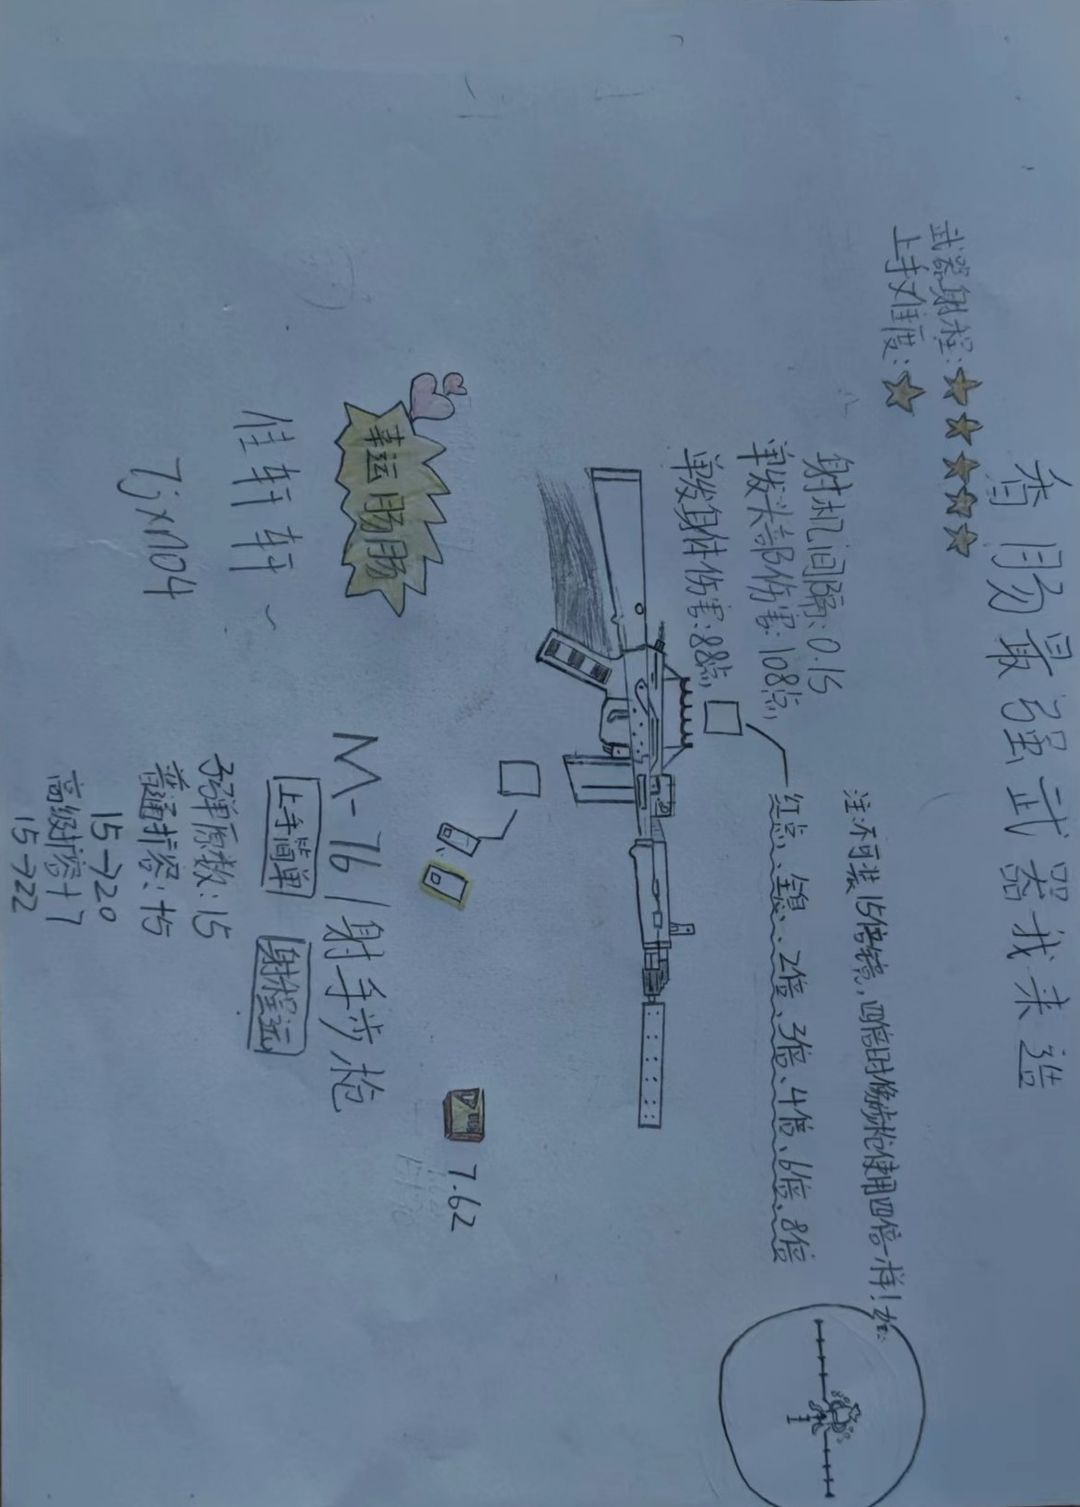 香肠最强武器我来造
武器射程:
上手难度:
射机间隔:0.1S
单发头部伤害:108点
单发身体伤害:88点
注:不可装15倍镜,四倍时像步枪使用四倍一样!
红点、全息、2倍、3倍、4倍、6倍、8倍
幸运肠肠
佳轩轩~
7.62
M-76/射手步枪
上手简单
射程远
子弹原数:15
普通扩容:+5
15→20
高级扩容+7
15→22